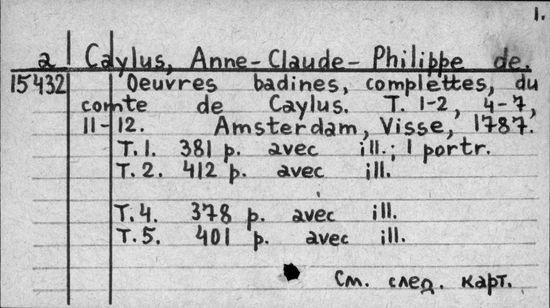 1.
a Caylus, Anne-Claude-Philippe de.
15432 Oeuvres badines, complettes, du
comte de Caylus. T. 1-2, 4-7,
11-12. Amsterdam, Visse, 1787.
T. 1. 381 p. avec ill.; 1 portr.
T. 2. 412 p. avec ill.
T. 4. 378 p. avec ill.
T. 5. 401 p. avec ill.
См. след. карт.